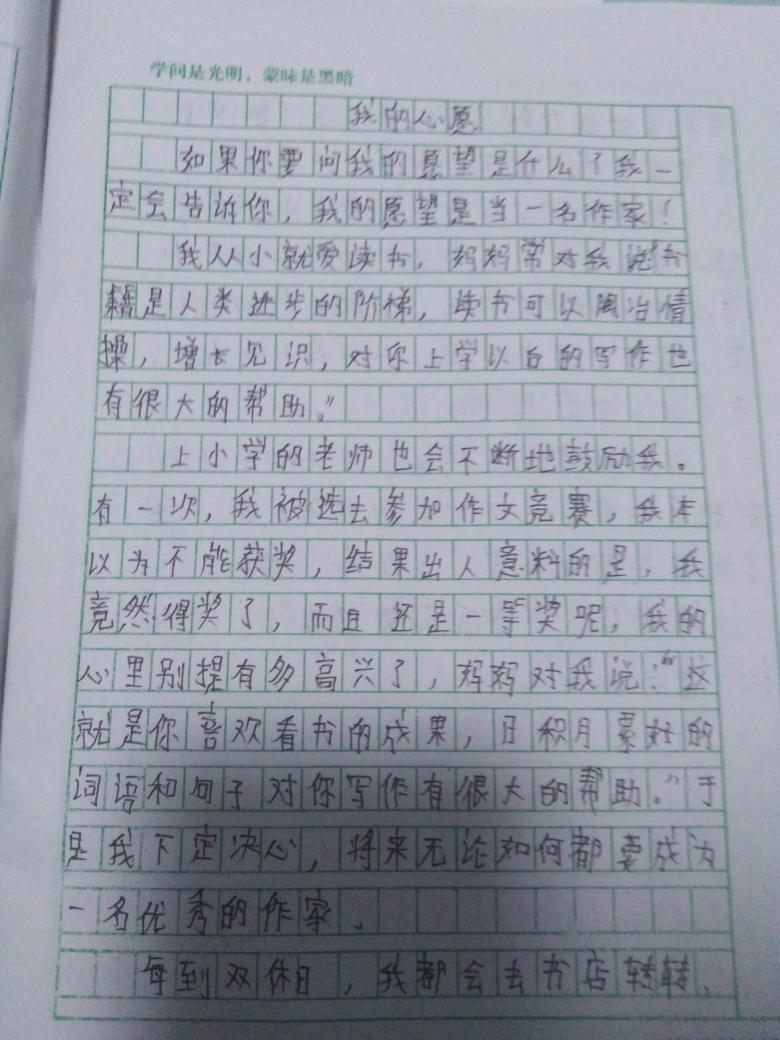 学问是光明，蒙昧是黑暗
我的心愿
如果你要问我的愿望是什么？我一
定会告诉你，我的愿望是当一名作家！
我从小就爱读书，妈妈常对我说“书
籍是人类进步的阶梯，读书可以陶冶情
操，增长见识，对你上学以后的写作也
有很大的帮助。”
上小学的老师也会不断地鼓励我。
有一次，我被选去参加作文竞赛，我本
以为不能获奖，结果出人意料的是，我
竟然得奖了，而且还是一等奖呢，我的
心里别提有多高兴了，妈妈对我说：“这
就是你喜欢看书的成果，日积月累好的
词语和句子对你写作有很大的帮助。”于
是我下定决心，将来无论如何都要成为
一名优秀的作家、
每到双休日，我都会去书店转转，